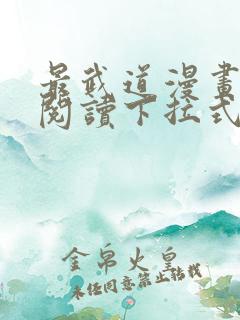 最武道漫畫
閱讀下拉式
金帛火皇
未经同意禁止转载